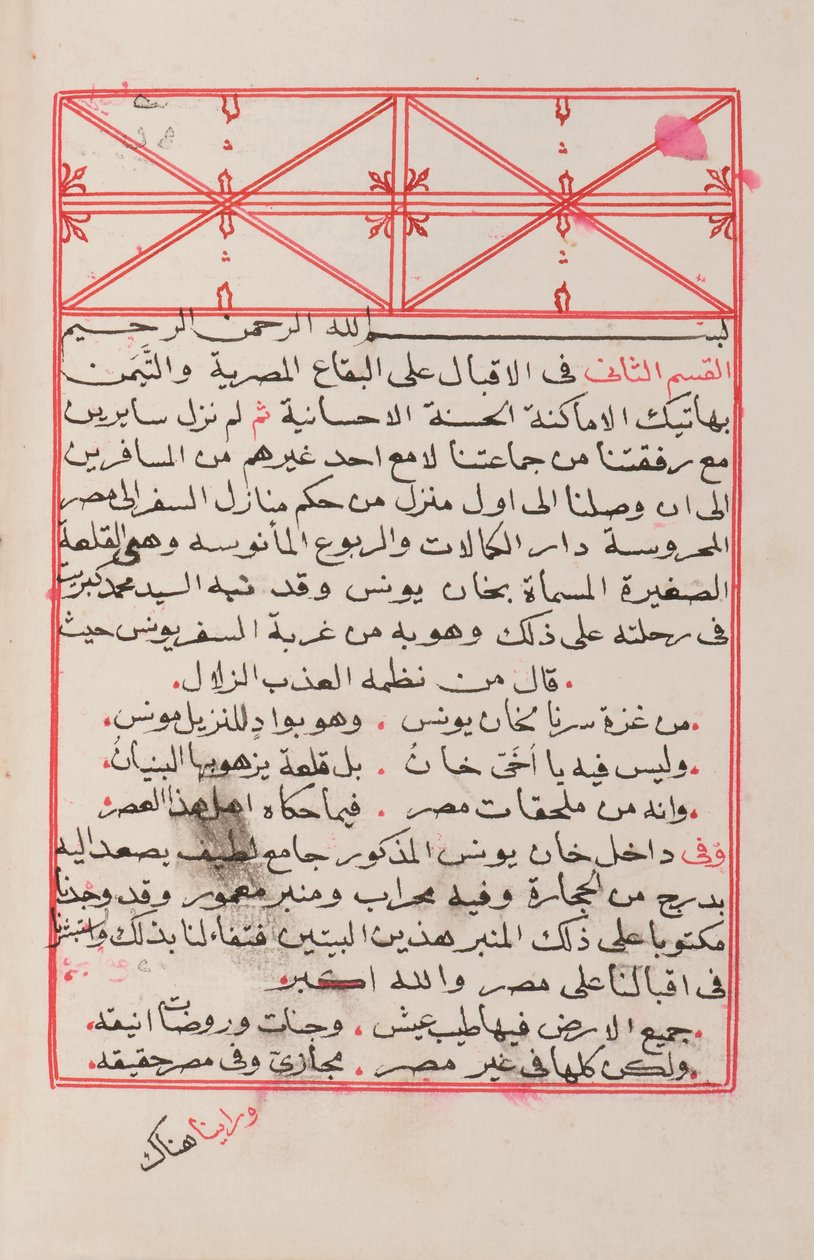 بسم الله الرحمن الرحيم
القسم الثانى فى الاقبال على البقاع المصرية والتَّيَمن
بهاتيك الاماكنة الحسنة الاحسانية ثم لم نزل سايرين
مع رفقتنا من جماعتنا لا مع احد غيرهم من المسافرين
الى ان وصلنا الى اول منزل من حكم منازل السفر الى مصر
المحروسة دار الكمالات والربوع المأنوسه وهى القلعة
الصغيرة المسماة بخان يونس وقد نبه السيد محمد كبريت
فى رحلته على ذلك وهو به من غربة السفر يونس حيث
قال من نظمه العذب الزلال
من غزة سرنا لخان يونس . وهو بوادٍ للنزيل مونس
وليس فيه يا اُخَىّ خانُ . بل قلعة يزهو بها البنيانُ
وانه من ملحقات مصر . فيما حكاه اهل هذا العصر
وفى داخل خان يونس المذكور جامع لطيف يصعد اليه
بدرج من الحجارة وفيه محراب ومنبر معمور وقد وجدنا
مكتوبا على ذلك المنبر هذين البيتين فتفاءلنا بذلك واستبشرنا
فى اقبالنا على مصر والله اكبر
جميع الارض فيها طيب عيش . وجنات وروضات انيقه
ولكن كلها فى غير مصر . مجازىّ وفى مصر حقيقه
وراينا هناك